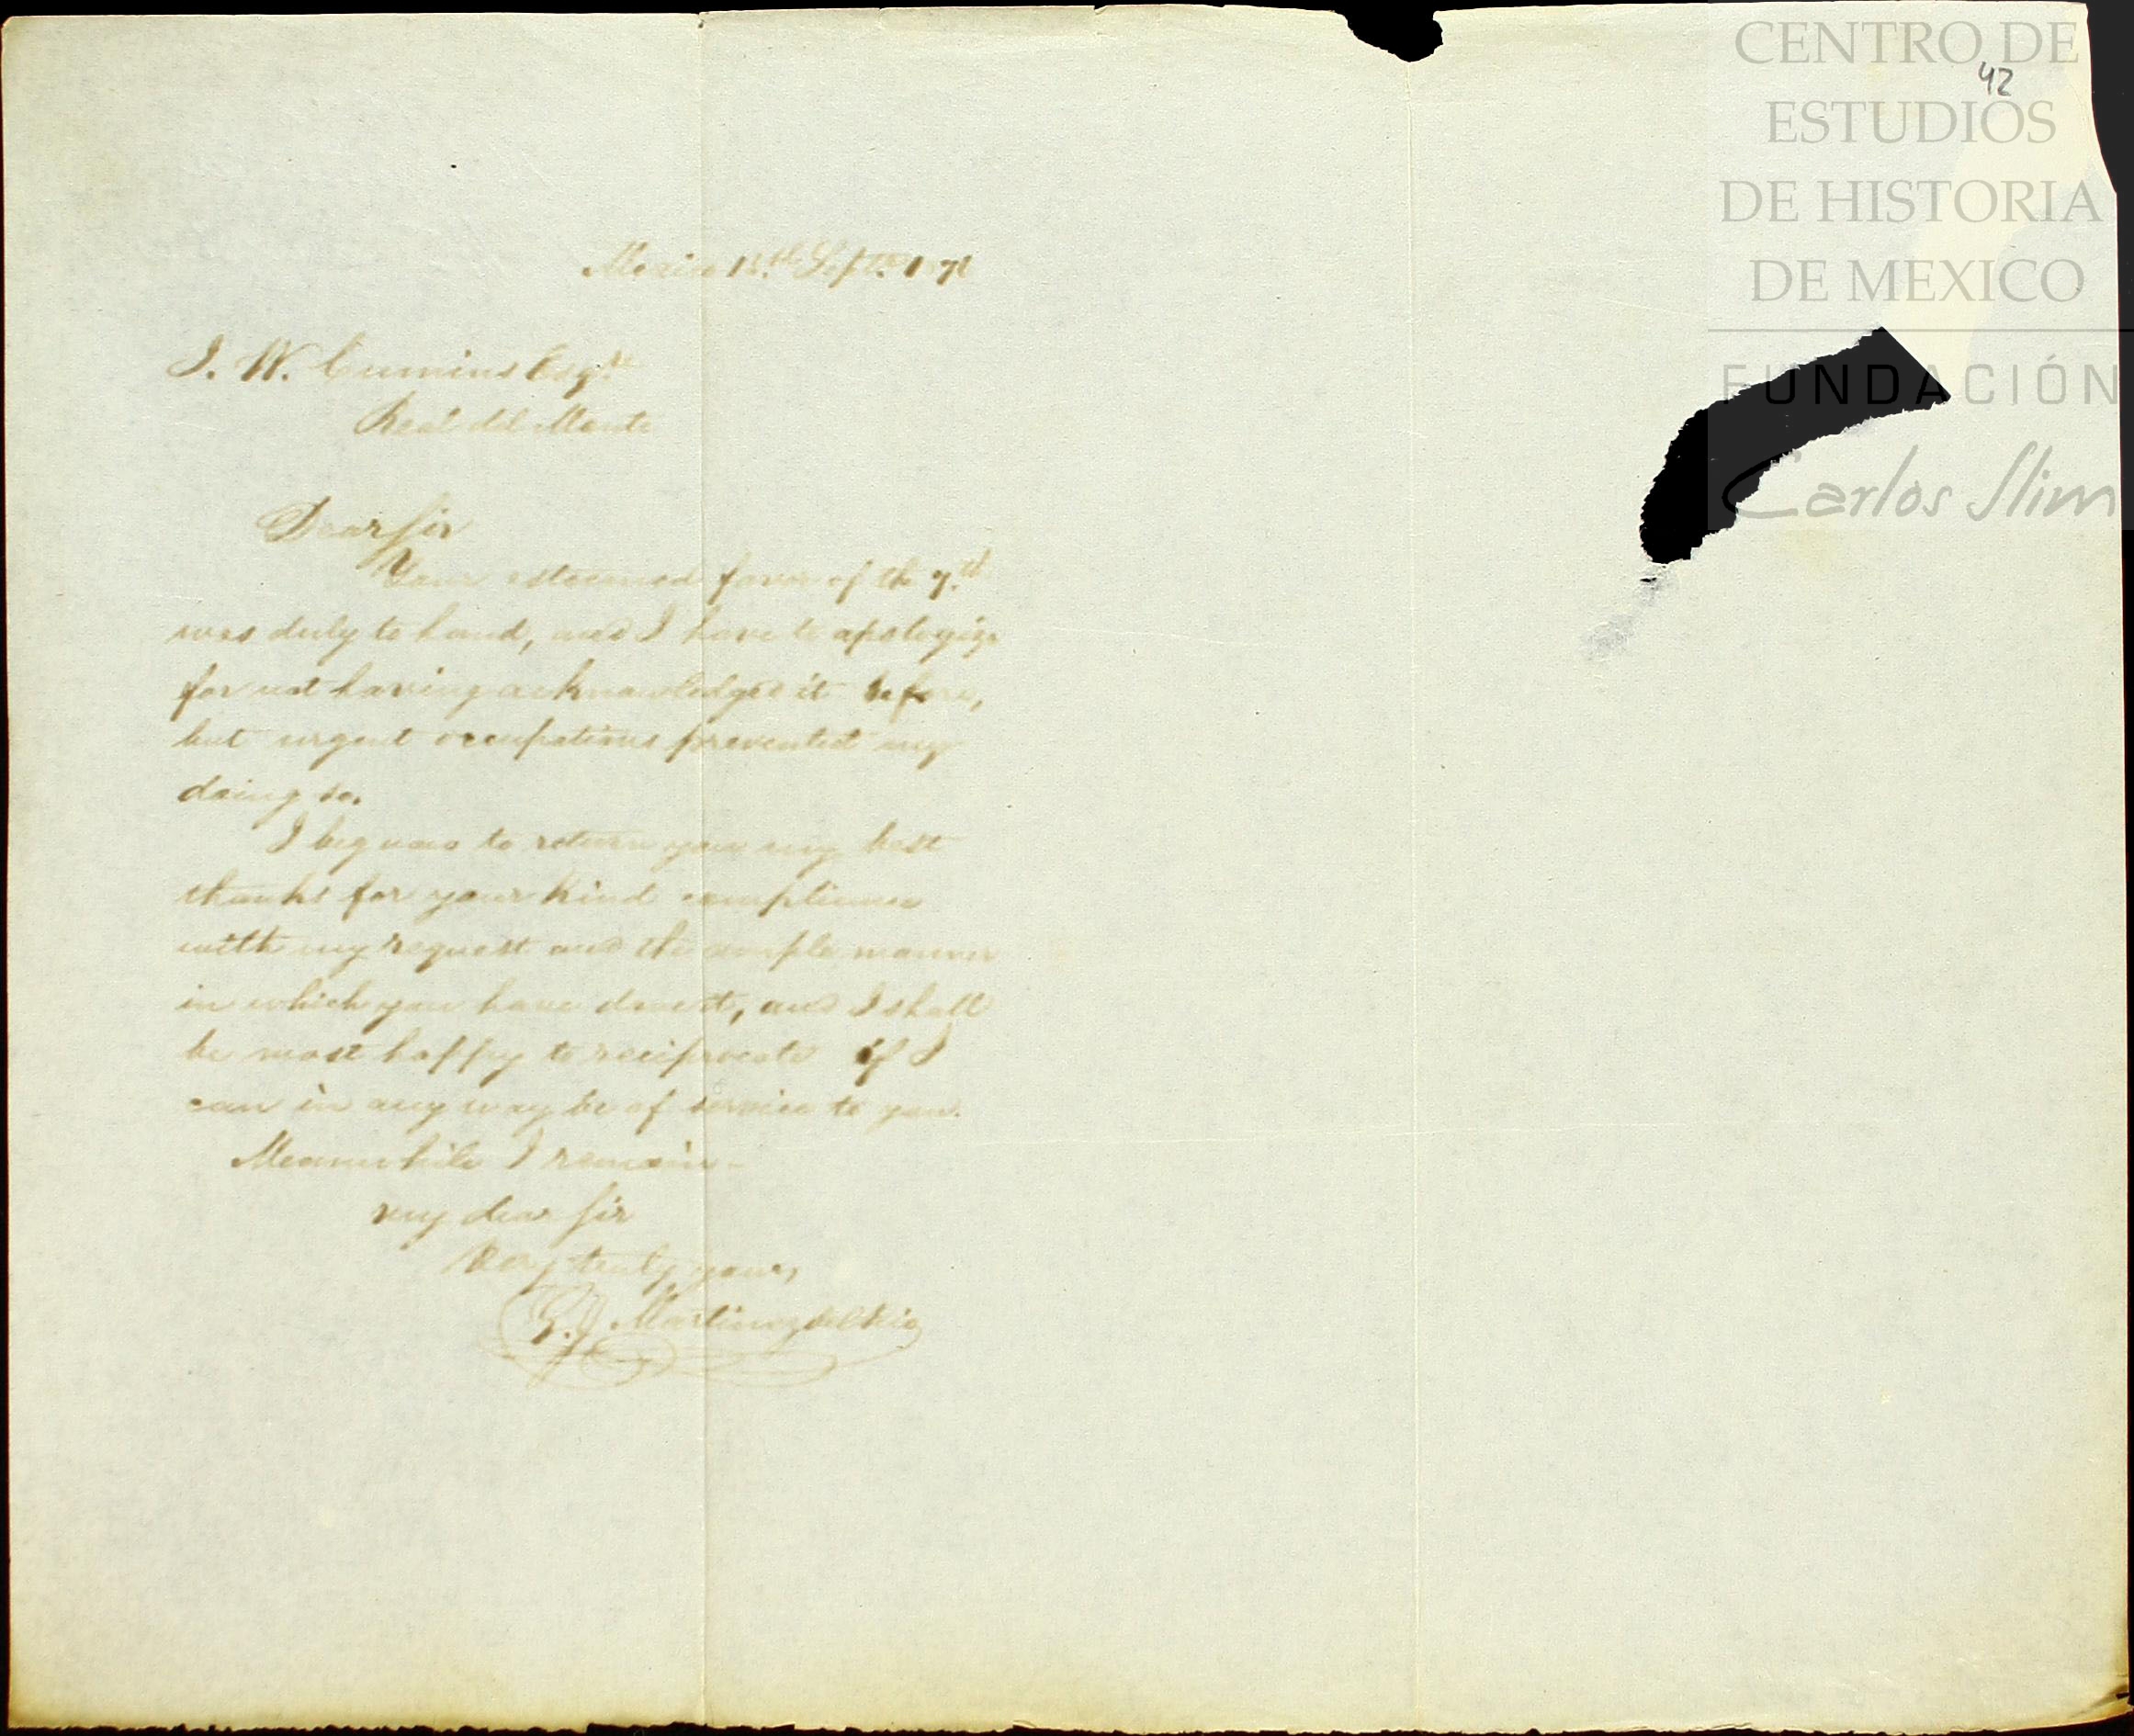 Mexico Sept.
J. W. Cumins Esqre
Real del Monte
Dear Sir
Your esteemed favor of the 7th
was duly to hand, and I have to apologize
for not having acknowledged it before,
but urgent occupations prevented my
doing so.
I beg now to return you my best
thanks for your kind compliance
with my request and the ample manner
in which you have done it, and I shall
be most happy to reciprocate if I
can in any way be of service to you.
Meanwhile I remain-
my dear Sir
Very truly yours,
Martinez del Rio
42
CENTRO DE
ESTUDIOS
DE HISTORIA
DE MEXICO
FUNDACIÓN
Carlos Slim